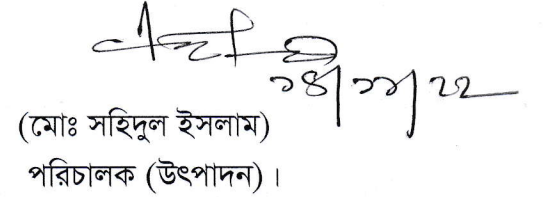 ১৪/১১/২২
(মোঃ সহিদুল ইসলাম)
পরিচালক (উৎপাদন)।